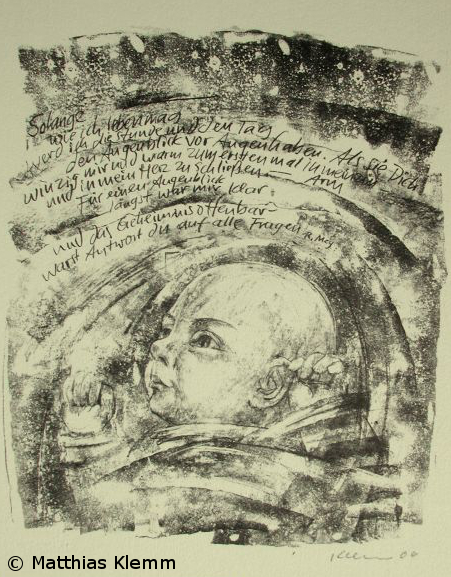 Solange
wie ich leben mag
werd ich die Stunde und den Tag
den Augenblick vor Augen haben. Als sie Dich
winzig mir und warm zum ersten mal in meinen
und in mein Herz zu schließen — Arm
Für einen Augenblick
längst war mir klar:
und das Geheimnis offenbar –
warst Antwort du auf alle Fragen R. Mey
Klemm
© Matthias Klemm